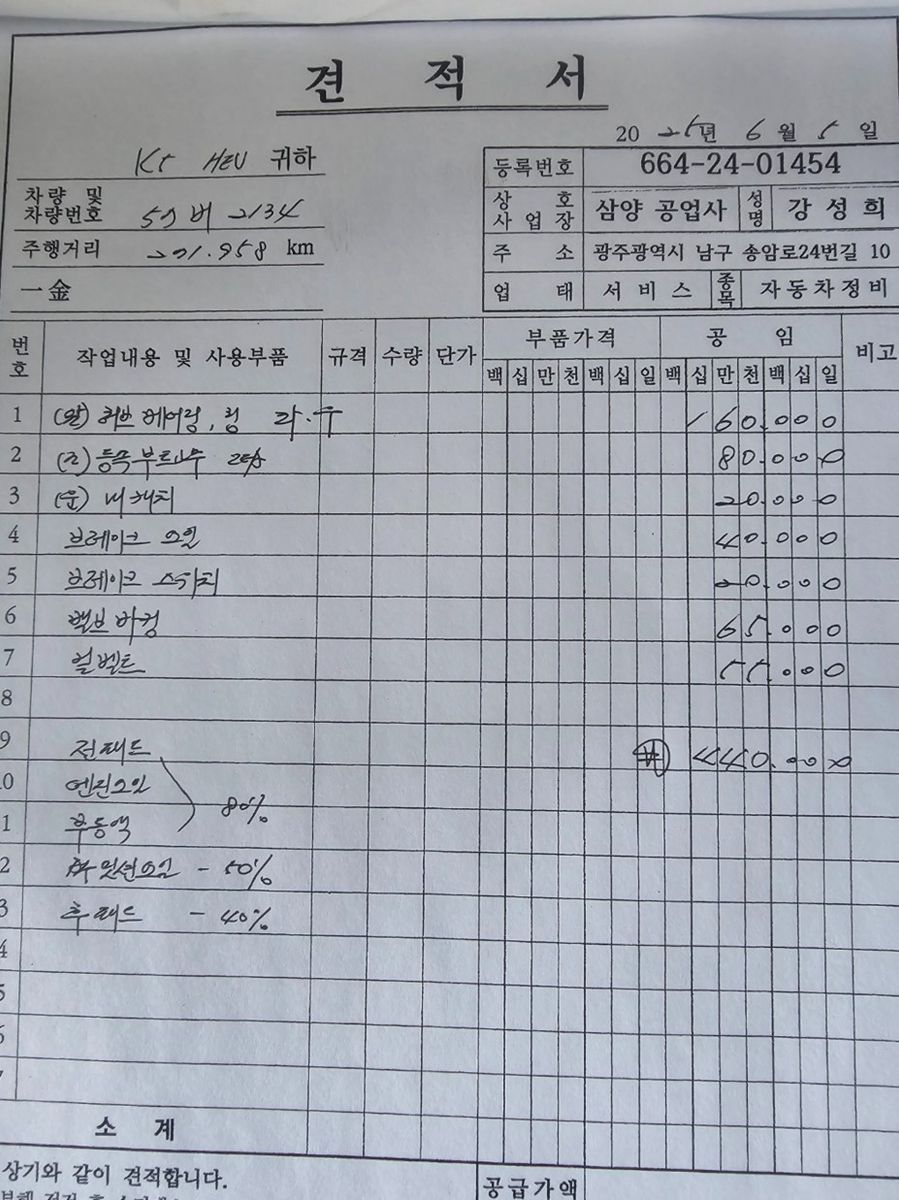 견 적 서
20 25년 6 월 5 일
K5 HEV 귀하
등록번호 664-24-01454
차량 및 차량번호 59버 2134
상 호 사업장 삼양 공업사 성명 강성희
주행거리 201.958 km
주 소 광주광역시 남구 송암로24번길 10
一金
업 태 서비스 종목 자동차정비
번호 작업내용 및 사용부품 규격 수량 단가 부품가격 공 임 비고
백 십 만 천 백 십 일 백 십 만 천 백 십 일
1 (앞) 허브 베어링, 링 좌·우 160.000
2 (좌) 등속부트 80.000
3 (운) 내캐치 20.000
4 브레이크 오일 40.000
5 브레이크 스위치 20.000
6 밸브 바킹 65.000
7 겉벨트 55.000
8
9 전패드 ₩ 440.000
0 엔진오일 80%
1 부동액
2 밋션오일 - 50%
3 후패드 - 40%
4
5
6
소 계
상기와 같이 견적합니다.
공급가액